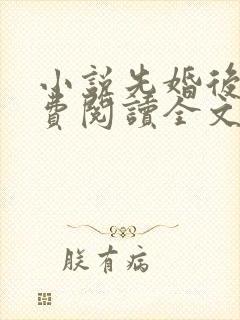 小說先婚後
費閱讀全文
朕有病